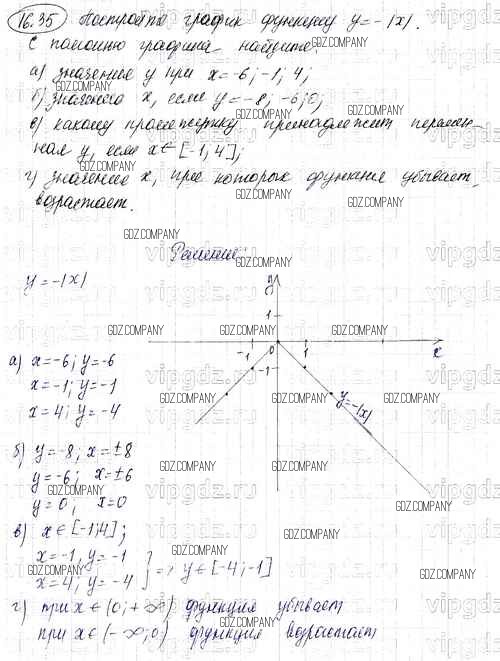 16.35 Построить график функции y=-|x|.
С помощью графика найдите:
а) значение y при x=-6; -1; 4;
б) значение x, если y=-8; -6; 0;
в) какому промежутку принадлежит перемен-
ная y, если x∈[-1,4];
г) значение x, при которых функция убывает,
возрастает.
Решение:
y=-|x|
y
1
-1 0 1 x
-1
y=-|x|
а) x=-6; y=-6
x=-1; y=-1
x=4; y=-4
б) y=-8; x=±8
y=-6; x=±6
y=0; x=0
в) x∈[-1;4];
x=-1, y=-1
x=4; y=-4 } => y∈[-4;-1]
г) при x∈(0;+∞) функция убывает
при x∈(-∞;0) функция возрастает
GDZ.COMPANY
vipgdz.ru